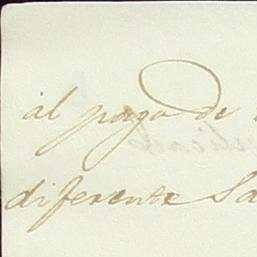 al pago de
diferente Sa